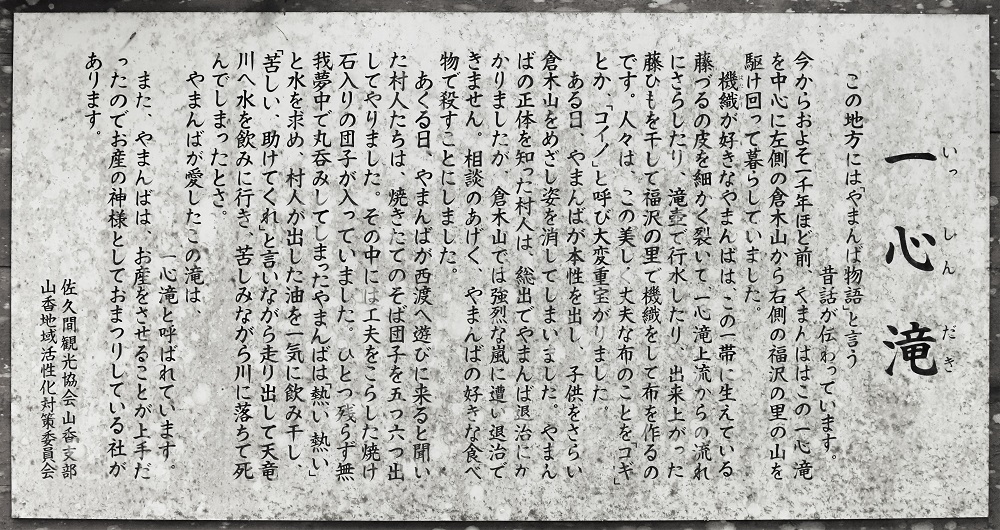 一心滝
いっしんだき
この地方には「やまんば物語」と言う
昔話が伝わっています。
今からおよそ一千年ほど前、やまんばはこの一心滝
を中心に左側の倉木山から右側の福沢の里の山を
駆け回って暮らしていました。
機織が好きなやまんばは、この一帯に生えている
藤づるの皮を細かく裂いて一心滝上流からの流れ
にさらしたり、滝壺で行水したり、出来上がった
藤ひもを干して福沢の里で機織をして布を作るの
です。人々は、この美しく丈夫な布のことを「コギ」
とか、「コイノ」と呼び大変重宝がりました。
ある日、やまんばが本性を出し、子供をさらい
倉木山をめざし姿を消してしまいました。やまん
ばの正体を知った村人は、総出でやまんば退治にか
かりましたが、倉木山では強烈な嵐に遭い退治で
きません。相談のあげく、やまんばの好きな食べ
物で殺すことにしました。
あくる日、やまんばが西渡へ遊びに来ると聞い
た村人たちは、焼きたてのそば団子を五つ六つ出
してやりました。その中には工夫をこらした焼け
石入りの団子が入っていました。ひとつ残らず無
我夢中で丸呑みしてしまったやまんばは「熱い熱い」
と水を求め、村人が出した油を一気に飲み干し、
「苦しい、助けてくれ」と言いながら走り出して天竜
川へ水を飲みに行き、苦しみながら川に落ちて死
んでしまったとさ。
やまんばが愛したこの滝は、
一心滝と呼ばれています。
また、やまんばは、お産をさせることが上手だ
ったのでお産の神様としておまつりしている社が
あります。
佐久間観光協会山香支部
山香地域活性化対策委員会